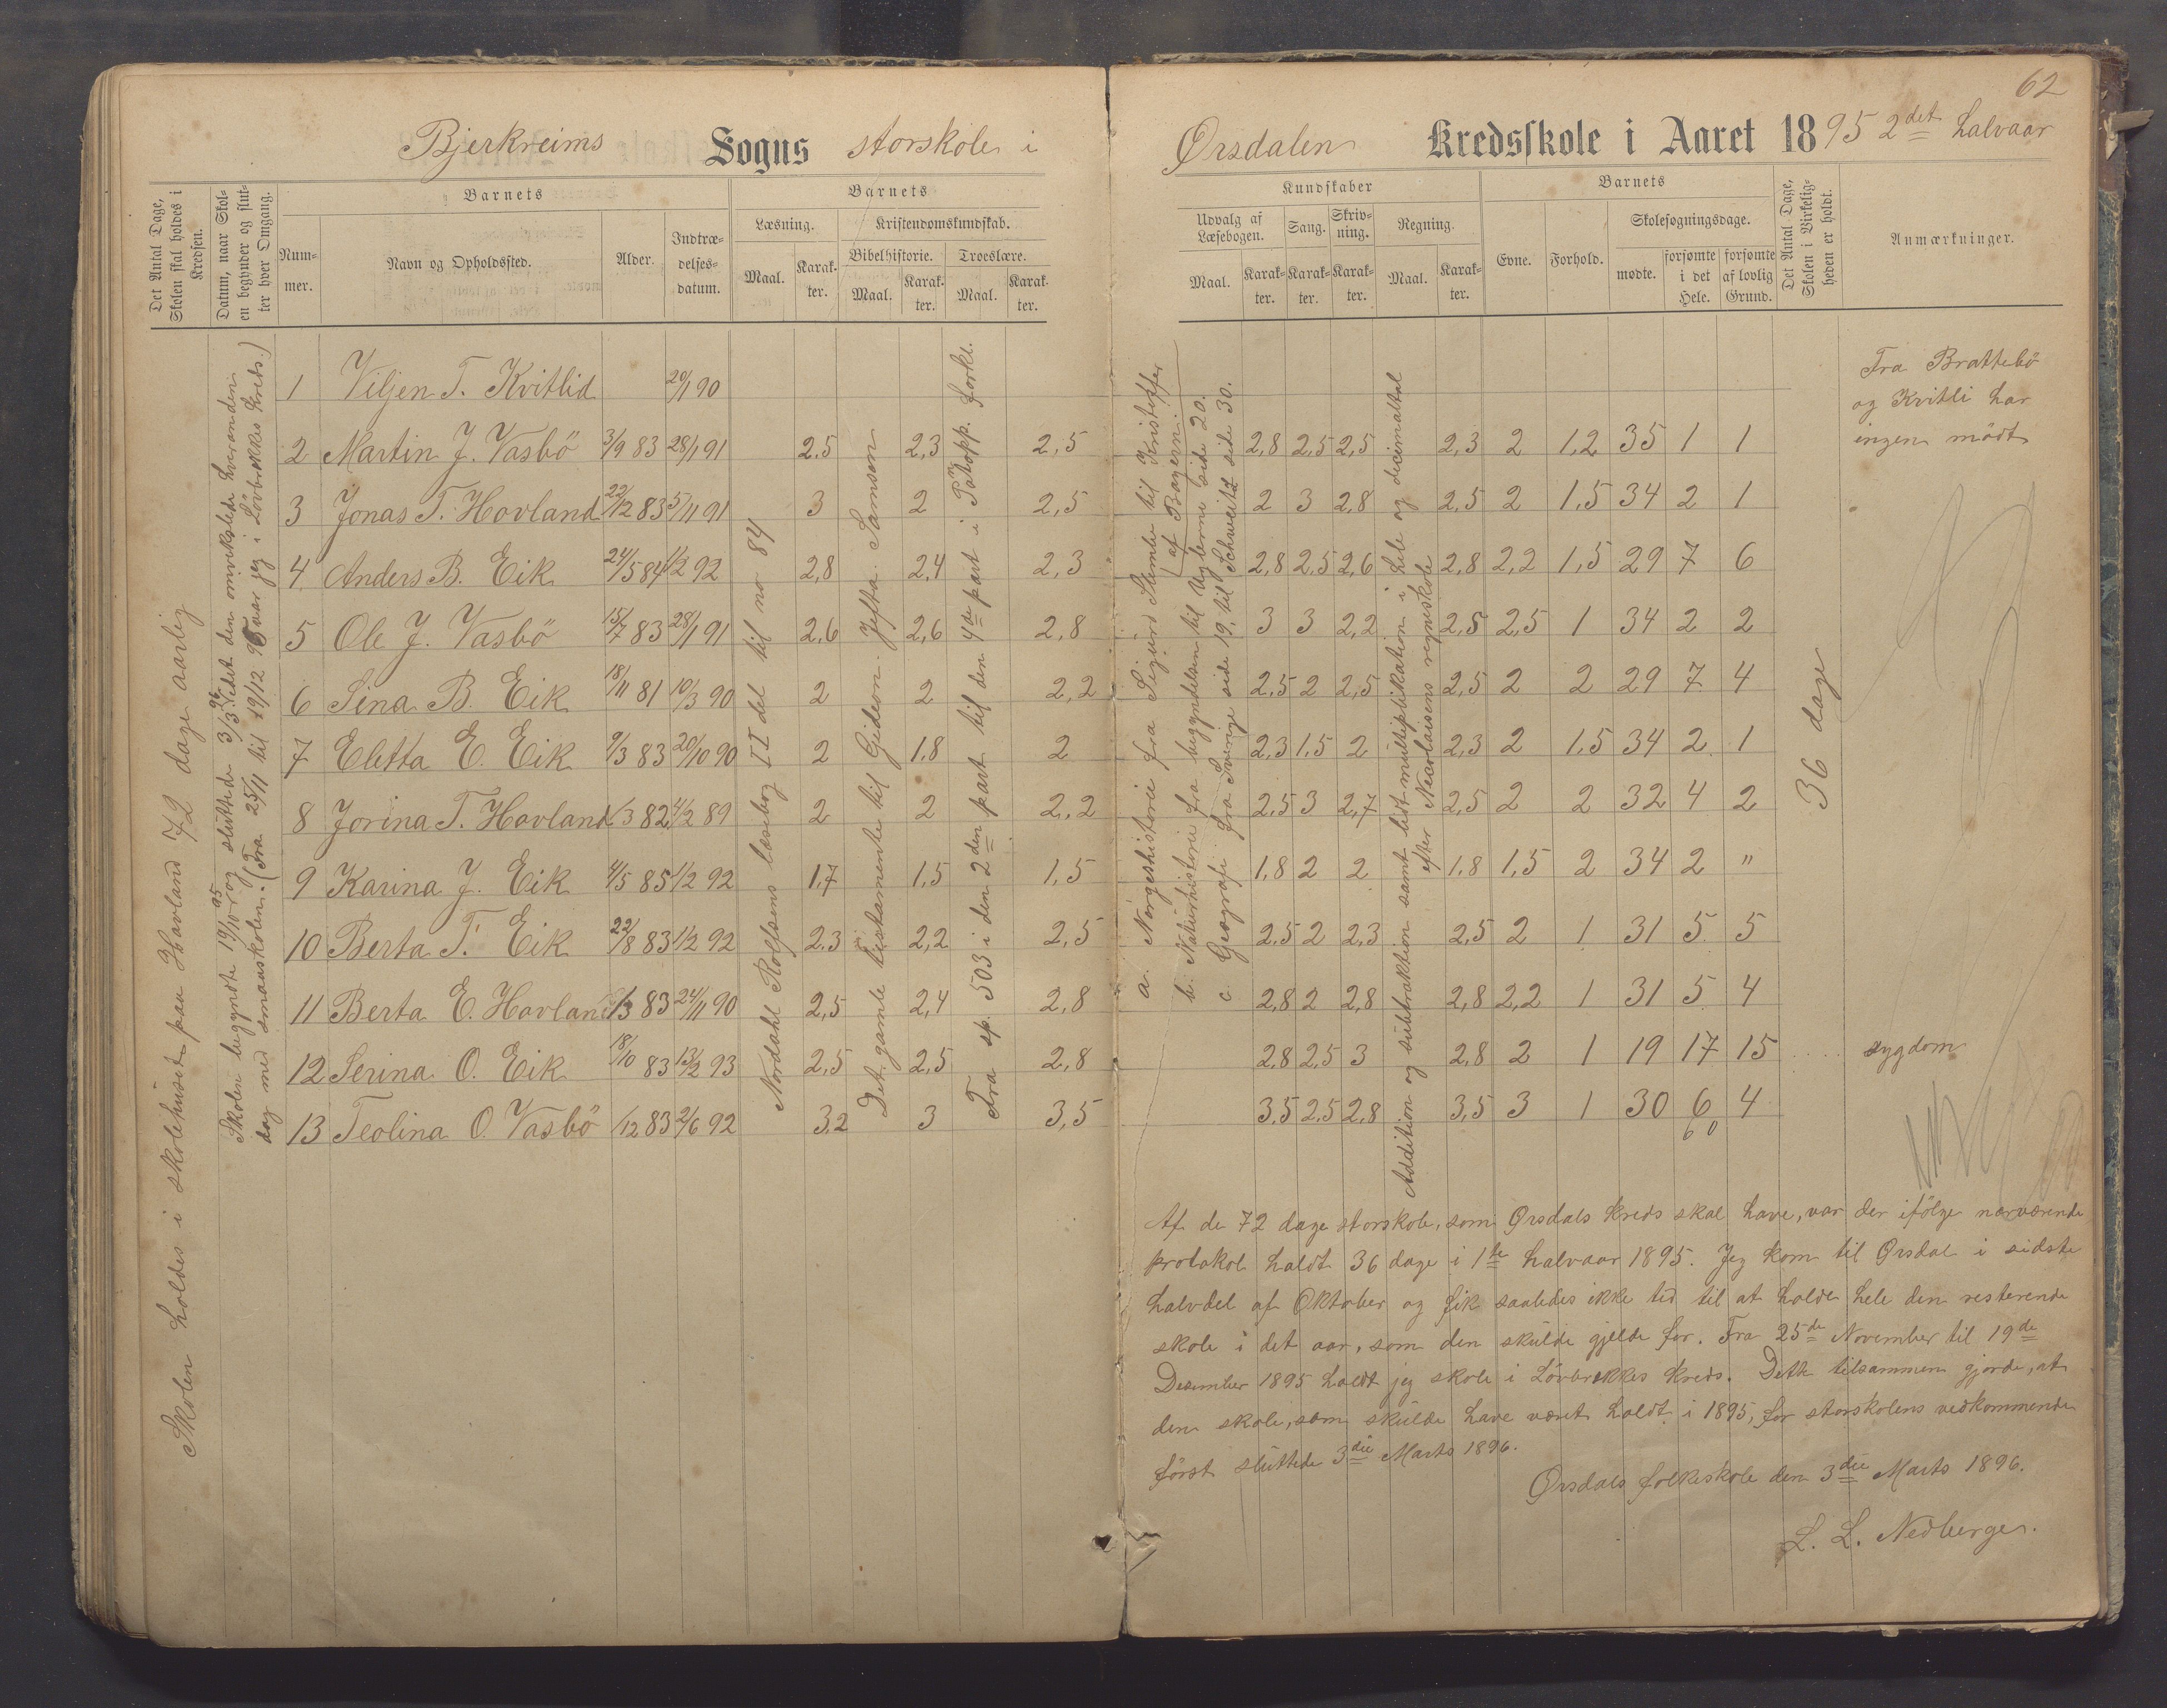 62
Bjerkreims Sogns storskole i Ørsdalen Kredsskole i Aaret 1895 2det halvaar
Det Antal Dage, Skolen skal holdes i Kredsen.
Datum, naar Skolen begynder og slutter hver Omgang.
Barnets
Nummer.
Navn og Opholdssted.
Alder.
Indtrædelsesdatum.
Barnets
Læsning.
Maal.
Karakter.
Kristendomskundskab.
Bibelhistorie.
Maal.
Karakter.
Troeslære.
Maal.
Karakter.
Kundskaber
Udvalg af Læsebogen.
Maal.
Karakter.
Sang.
Karakter.
Skrivning.
Karakter.
Regning.
Maal.
Karakter.
Barnets
Evne.
Forhold.
Skolesøgningsdage.
mødte.
forsømte i det Hele.
forsømte af lovlig Grund.
Det Antal Dage, Skolen i Virkeligheden er holdt.
Anmærkninger.
Skolen holdes i skolehuset paa Havland 72 dage aarlig
Skolen begyndte 19/10 95 og sluttede 3/3 96. Vedet den omvekslede hverandendag med smaaskolen. (Fra 25/11 til 19/12 95 var jeg i Lövbrekkes kreds.)
Nordahl Rolfsens læsebog II del til no 84
Det gamle testamente til Gideon. Jefta. Samson
Fra sp. 503 i den 2den part til den 4de part i Påtopp. forkl.
a. Norgeshistorie fra Sigurd Slembe til Kristoffer af Bayern.
b. Naturhistorie fra begyndelsen til Uglerne side 20.
c. Geografi fra Sverige side 19, til Schweitz side 30.
Addition og subtraktion samt lidt multiplikation i hele og decimaltal
efter Nicolaisens regneskole
36 dage
1 Viljen T. Kvitlid 20/1 90
Fra Brattebö
og Kvitli har
ingen mödt
2 Martin J. Vasbö 3/9 83 28/1 91 2,5 2,3 2,5 2,8 2,5 2,5 2,3 2 1,2 35 1 1
3 Jonas T. Hovland 22/12 83 5/11 91 3 2 2,5 2 3 2,8 2,5 2 1,5 34 2 1
4 Anders B. Eik 24/5 84 1/2 92 2,8 2,4 2,3 2,8 2,5 2,6 2,8 2,2 1,5 29 7 6
5 Ole J. Vasbö 15/7 83 28/1 91 2,6 2,6 2,8 3 3 2,2 2,8 2,5 1 34 2 2
6 Sina B. Eik 18/11 81 10/3 90 2 2 2,2 2,5 2 2,5 2,5 2 2 29 7 4
7 Eletta E. Eik 9/3 83 20/10 90 2 1,8 2 2,3 1,5 2 2,3 2 1,5 34 2 1
8 Jorina T. Hovland /3 82 4/2 89 2 2 2,2 2,5 3 2,7 2,5 2 2 32 4 2
9 Karina J. Eik 4/5 85 1/2 92 1,7 1,5 1,5 1,8 2 2 1,8 1,5 2 34 2 "
10 Berta T. Eik 22/8 83 1/2 92 2,3 2,2 2,5 2,5 2 2,3 2,5 2 1 31 5 5
11 Berta E. Hovland /3 83 24/11 90 2,5 2,4 2,8 2,8 2 2,8 2,8 2,2 1 31 5 4
12 Serina O. Eik 18/10 83 13/2 93 2,5 2,5 2,8 2,8 2,5 3 2,8 2 1 19 17 15 sygdom
13 Teolina O. Vasbö /12 83 2/6 92 3,2 3 3,5 3,5 2,5 2,8 3,5 3 1 30 6 4
60
Af de 72 dage storskole, som Ørsdals kreds skal have, var der ifölge nærværende
protokol holdt 36 dage i 1ste halvaar 1895. Jeg kom til Ørsdal i sidste
halvdel af Oktober og fik saaledes ikke tid til at holde hele den resterende
skole i det aar, som den skulde gjelde for. Fra 25de November til 19de
Desember 1895 holdt jeg skole i Lövbrekkes kreds. Dette tilsammen gjorde, at
den skole, som skulde have været holdt i 1895, for storskolens vedkommende
först sluttede 3die Marts 1896.
Ørsdals folkeskole den 3die Marts 1896.
L. L. Nedberge.